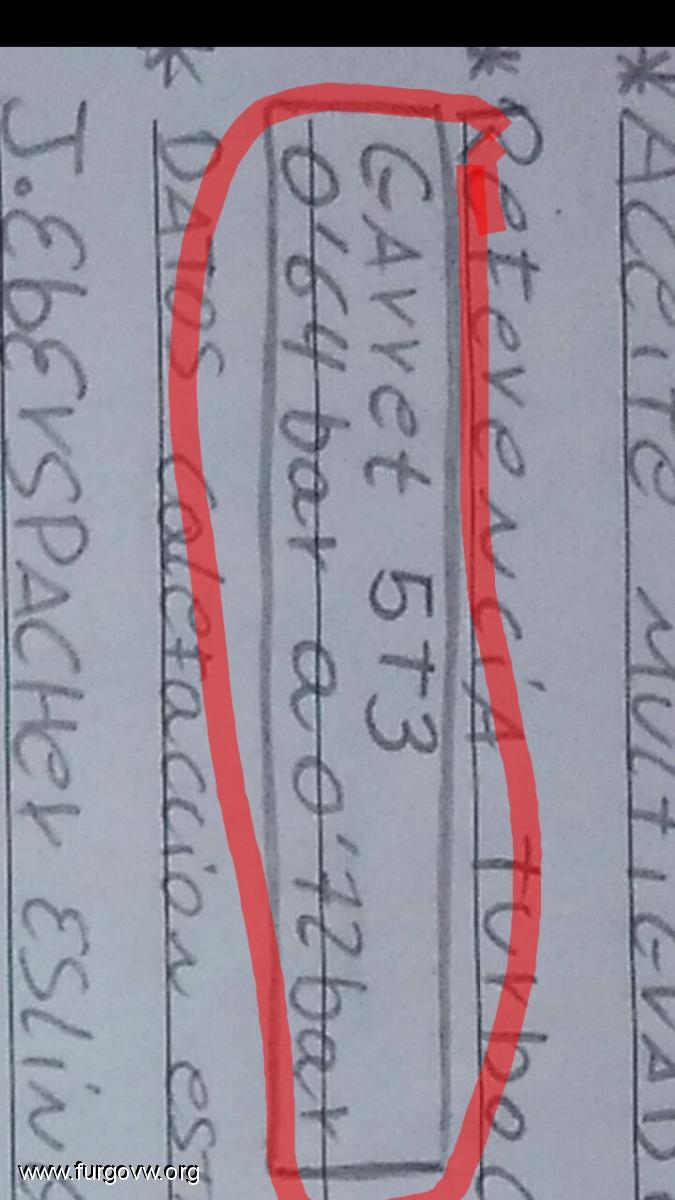 *ACEiTE MULTiGRAD
*ReferenciA turbo
GArret 5T3
0'64 bar a 0'72bar
* DATOS calefaccion est
J.EbErSPACHer ESLiNG
www.furgovw.org